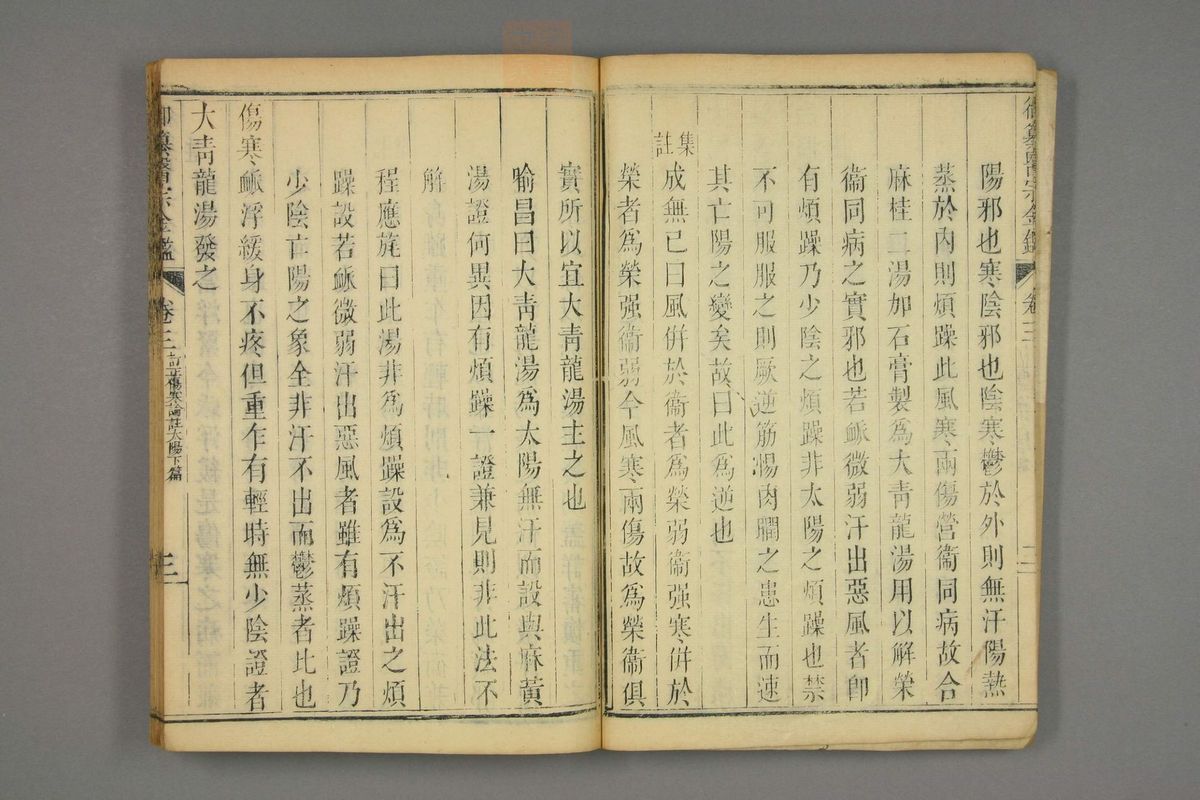 御纂醫宗金鑑
卷三
二
陽邪也寒陰邪也陰寒鬱於外則無汗陽熱
蒸於內則煩躁此風寒兩傷營衞同病故合
麻桂二湯加石膏製爲大青龍湯用以解榮
衞同病之實邪也若脈微弱汗出惡風者卽
有煩躁乃少陰之煩躁非太陽之煩躁也禁
不可服服之則厥逆筋惕肉瞤之患生而速
其亡陽之變矣故曰此爲逆也
集註
成無已曰風併於衞者爲榮弱衞强寒併於
榮者爲榮强衞弱今風寒兩傷故爲榮衞俱
實所以宜大青龍湯主之也
喻昌曰大青龍湯爲太陽無汗而設與麻黃
湯證何異因有煩躁一證兼見則非此法不
解
程應旄曰此湯非爲煩躁設爲不汗出之煩
躁設若脈微弱汗出惡風者雖有煩躁證乃
少陰亡陽之象全非汗不出而鬱蒸者比也
傷寒脈浮緩身不疼但重乍有輕時無少陰證者
大青龍湯發之
御纂醫宗金鑑
卷三
訂正傷寒論註太陽下篇
三